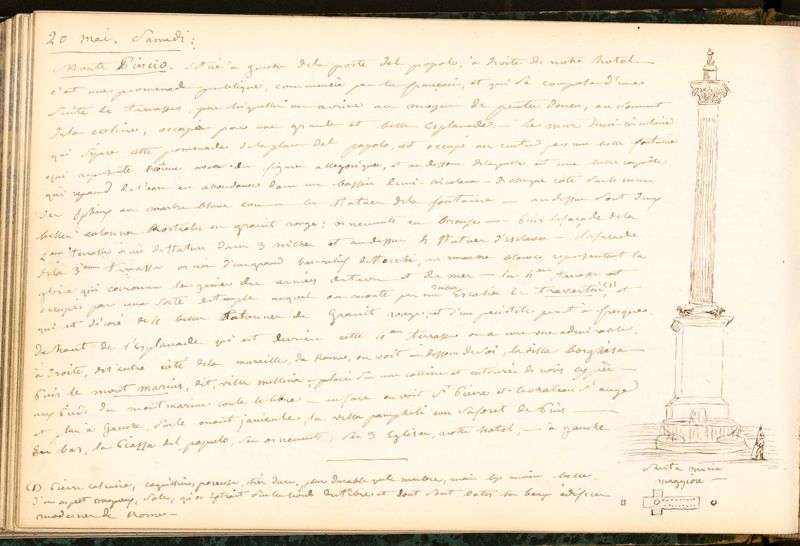 20 mai. Samedi:
Monte Pincio. Situé à gauche de la porte del popolo, à droite de notre hotel —
c'est une promenade publique, commencée par les français, et qui se compose d'une
suite de terrasses, par lesquelles on arrive au moyen de pentes douces, au sommet
de la colline, occupé par une grande et belle Esplanade — le mur demi-circulaire
qui sépare cette promenade de la place del popolo, est occupé au centre par une belle fontaine
qui représente Rome avec des figures allégoriques, et au dessous de laquelle est une belle coquille
qui répand de l'eau en abondance dans un bassin demi-circulaire — de chaque coté sur le mur
des Sphinx en marbre blanc comme les statues de la fontaine — au dessus sont deux
belles colonnes Rostrales en granit rouge; ornements en bronze — Puis la façade de la
2eme terrasse ornée de statues dans 3 niches et au dessus 4 statues d'Esclaves — la façade
de la 3eme terrasse ornée d'un grand bas-relief de Stocchi, en marbre blanc, représentant la
gloire qui couronne les génies des armées de terre et de mer — la 4eme terrasse est
occupée par une sorte de temple auquel on monte par un double Escalier de travertin, (1) et
qui est décoré de 4 belles colonnes de Granit rouge, et d'un péristile peint à fresques.
Du haut de l'Esplanade qui est derrière cette 4eme terrasse on a une vue admirable.
à droite, de l'autre côté de la muraille, de Rome, on voit au dessous de soi, la villa borghese —
Puis le mont marius, dit, villa mellina, placé sur une colline et entourée de noirs cyprès —
aux pieds du mont marius coule le tibre — en face on voit St Pierre et le chateau St ange
et plus à Gauche, sur le mont janicule, la villa pamphili avec sa foret de Pins —
En bas, la Piazza del popolo, ses ornements, ses 3 Eglises, notre hotel, — à gauche
(1) Pierre calcaire, coquillière, poreuse, très dure, plus durable que le marbre, mais moins belle.
d'un aspect rugueux, sale, qu'on extrait sur les bords du tibre et dont sont batis les beaux édifices
modernes de Rome —
Santa maria
maggiore —